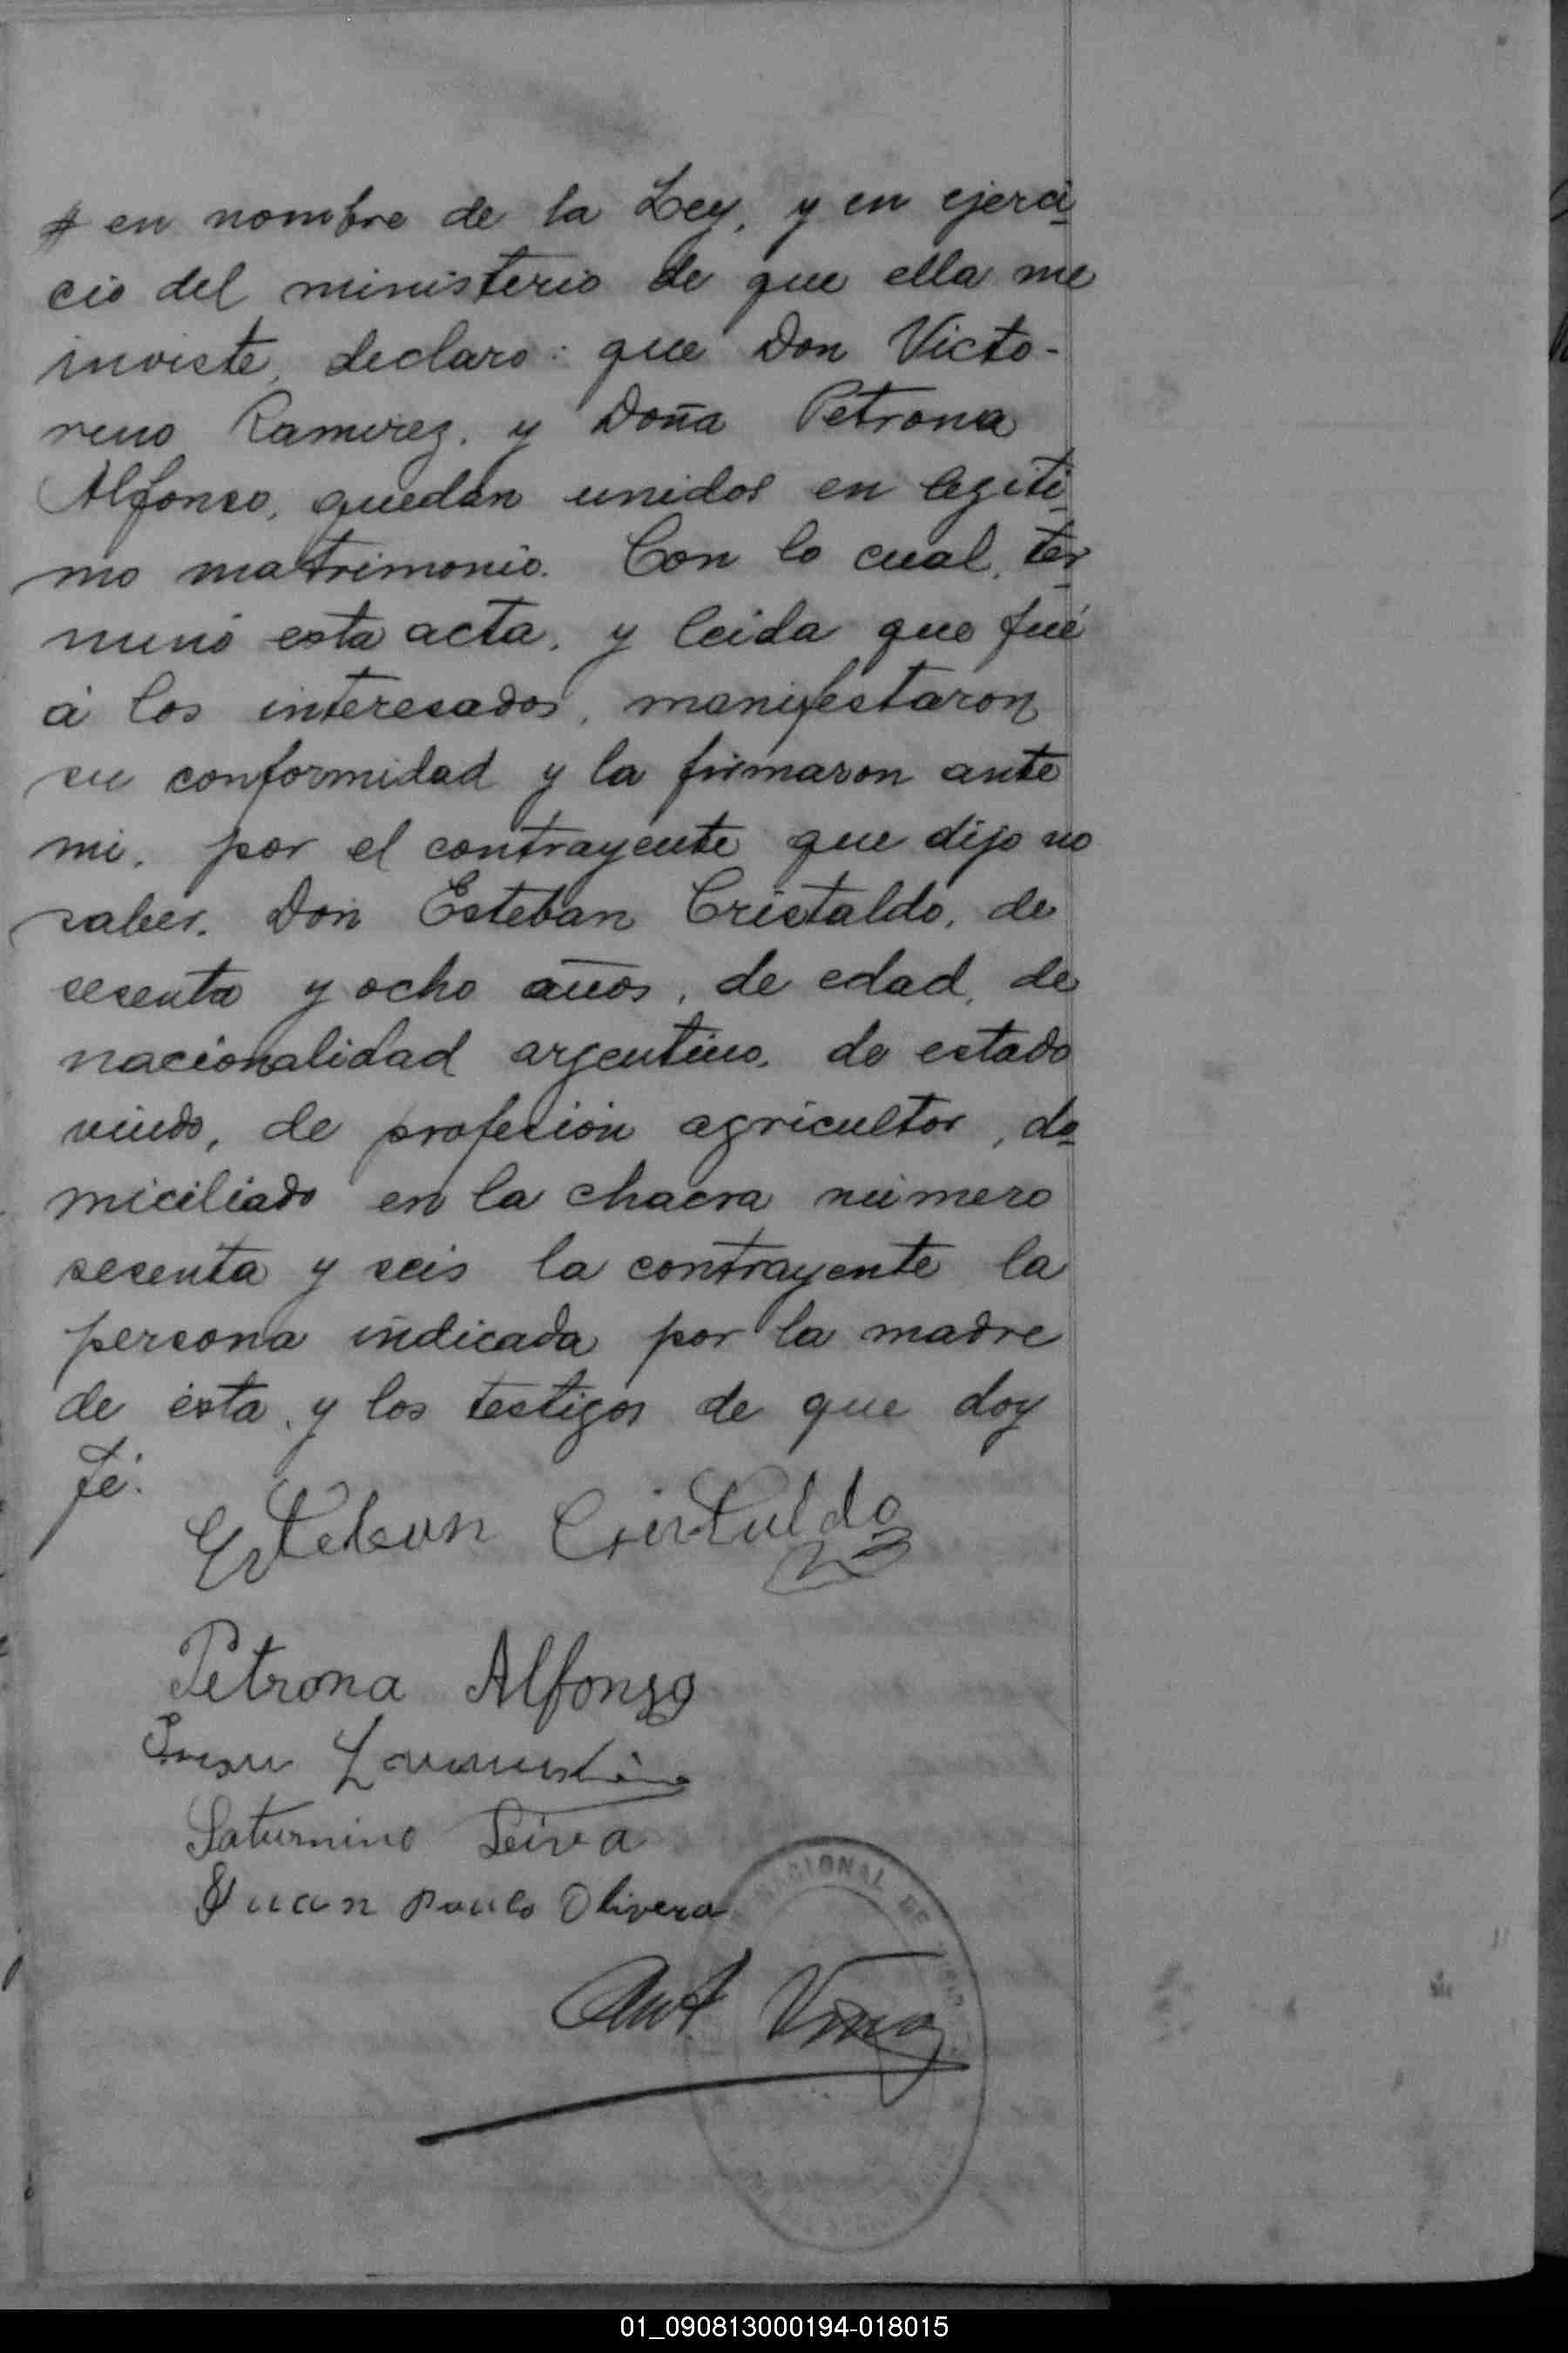 en nombre de la Ley, y en ejerci
cio del ministerio de que ella me
inviste, declaro: que Don Victo-
reno Ramirez, y Doña Petrona
Alfonso, quedan unidos en legiti
mo matrimonio. Con lo cual, ter
minó esta acta, y leida que fué
á los interesados, manifestaron
su conformidad y la firmaron ante
mi, por el contrayente que dijo no
saber, Don Esteban Cristaldo, de
sesenta y ocho años, de edad, de
nacionalidad argentino, de estado
viudo, de profesión agricultor, do
miciliado en la chacra número
sesenta y seis la contrayente la
persona indicada por la madre
de ésta, y los testigos de que doy
fé.
Esteban Cristaldo
Petrona Alfonso
Saturnino Leiva
Juan Paulo Olivera
NACIONAL DE
Ant
01_090813000194-018015